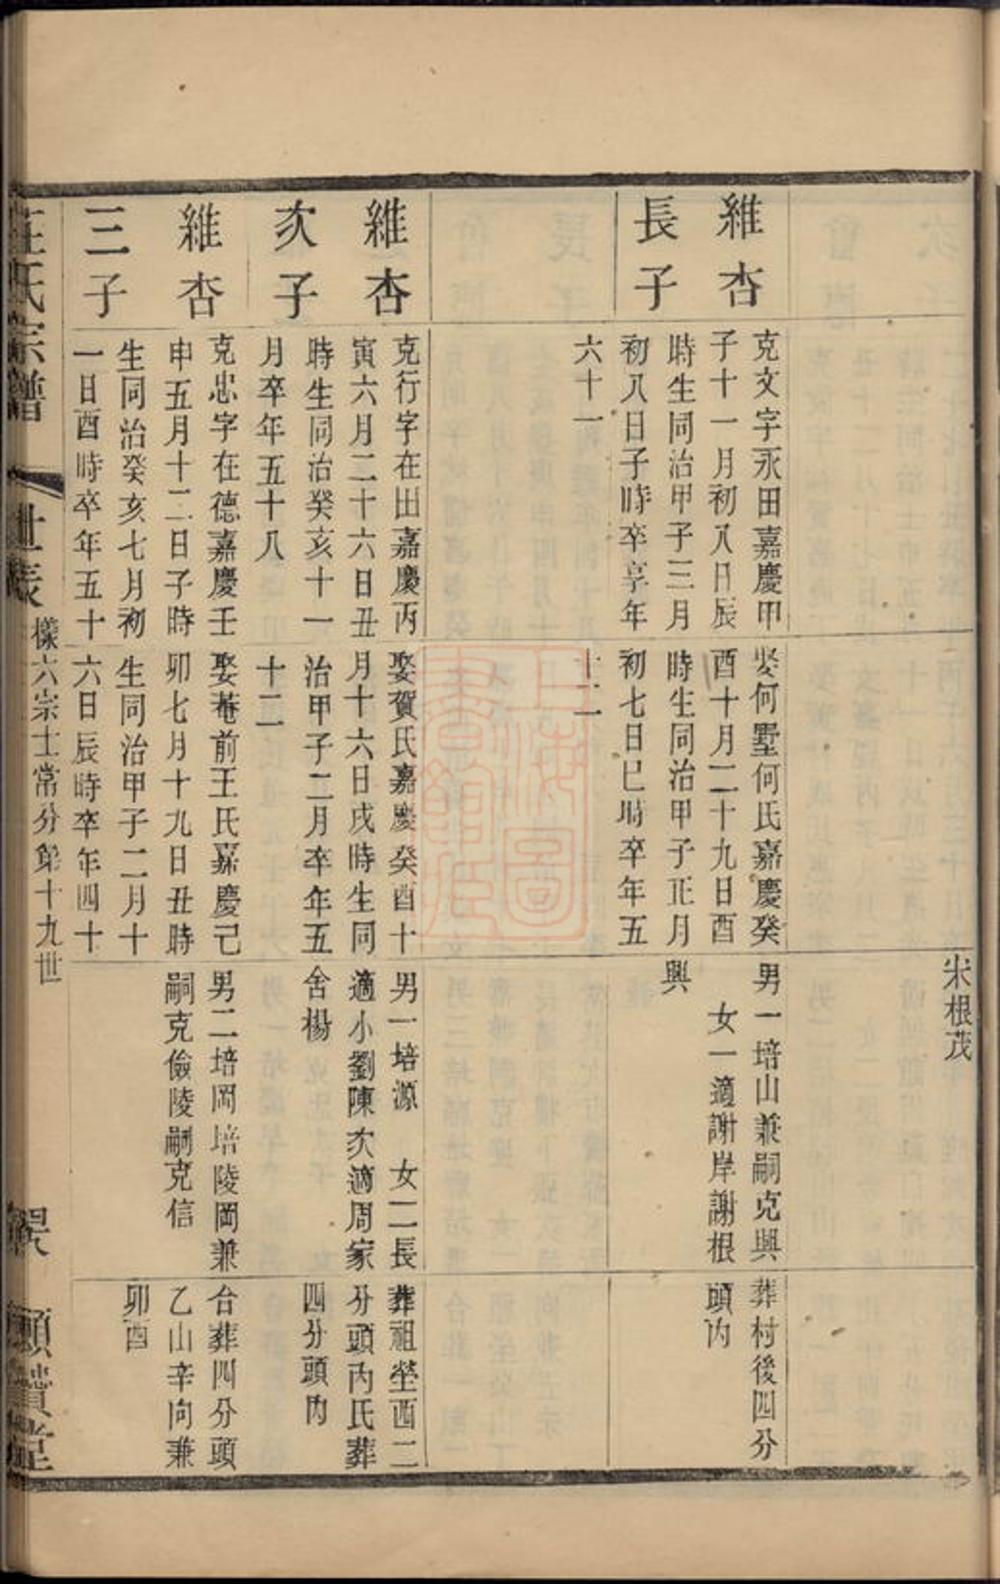 米根茂
維杏
長子
克文字永田嘉慶甲
子十一月初八日辰
時生同治甲子三月
初八日子時卒享年
六十一
娶何墅何氏嘉慶癸
酉十月二十九日酉
時生同治甲子正月
初七日巳時卒年五
十二
男一培山兼嗣克興
女一適謝岸謝根
興
葬村後四分
頭內
維杏
次子
克行字在田嘉慶丙
寅六月二十六日丑
時生同治癸亥十一
月卒年五十八
娶賀氏嘉慶癸酉十
月十六日戌時生同
治甲子二月卒年五
十二
男一培源 女二長
適小劉陳次適周家
舍楊
葬祖塋酉二
分頭內氏葬
四分頭內
維杏
三子
克忠字在德嘉慶壬
申五月十二日子時
生同治癸亥七月初
一日酉時卒年五十
娶菴前王氏嘉慶己
卯七月十九日丑時
生同治甲子二月十
六日辰時卒年四十
男二培岡培陵岡兼
嗣克儉陵嗣克信
合葬四分頭
乙山辛向兼
卯酉
氏宗譜 世表 樣六宗士常分第十九世